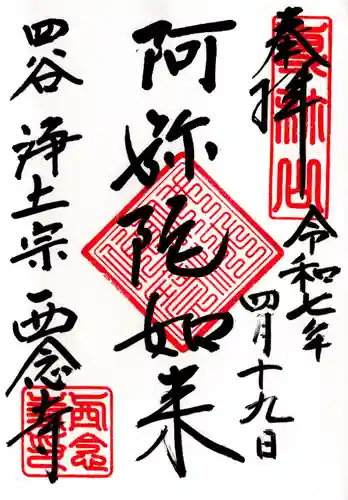 奉拝
令和七年
四月十九日
阿弥陀如来
四谷 浄土宗 西念寺